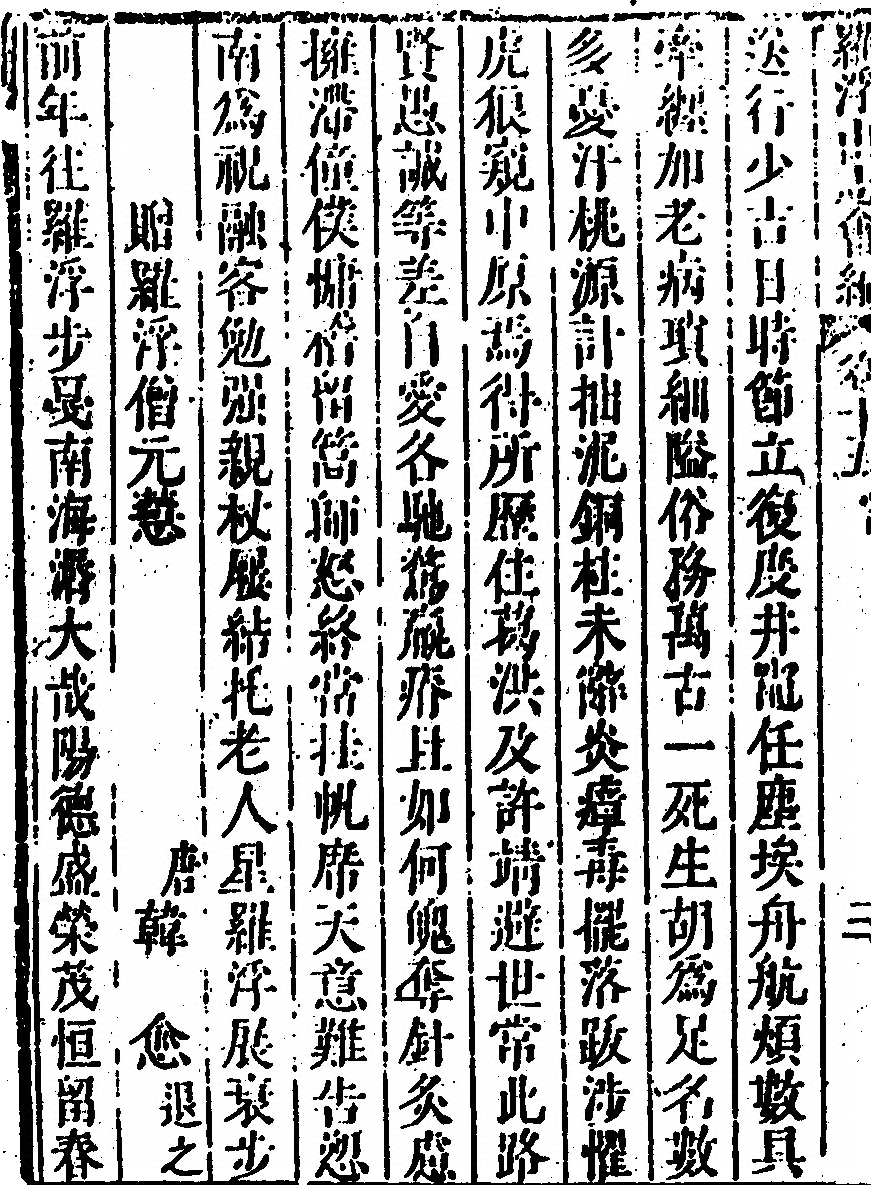 羅浮山會編 卷十五
逆行少吉日時節立復度井竈任塵埃舟航煩數具
牽纏加老病瑣細隘俗務萬古一死生胡爲足名數
多憂汙桃源計拙泥銅柱未辭炎瘴毒擺落跋涉懼
虎狼窺中原焉得所歷住葛洪及許靖避世常此路
賢愚誠等差自愛各馳騖羸瘠且如何魄奪針灸屢
擁滯僮僕慵稽留篙師怒終當挂帆席天意難告愬
南爲祝融客勉强親杖屨結托老人星羅浮展衰步
贈羅浮僧元慧 唐韓 愈退之
前年往羅浮步戛南海漘大哉陽德盛榮茂恒留春